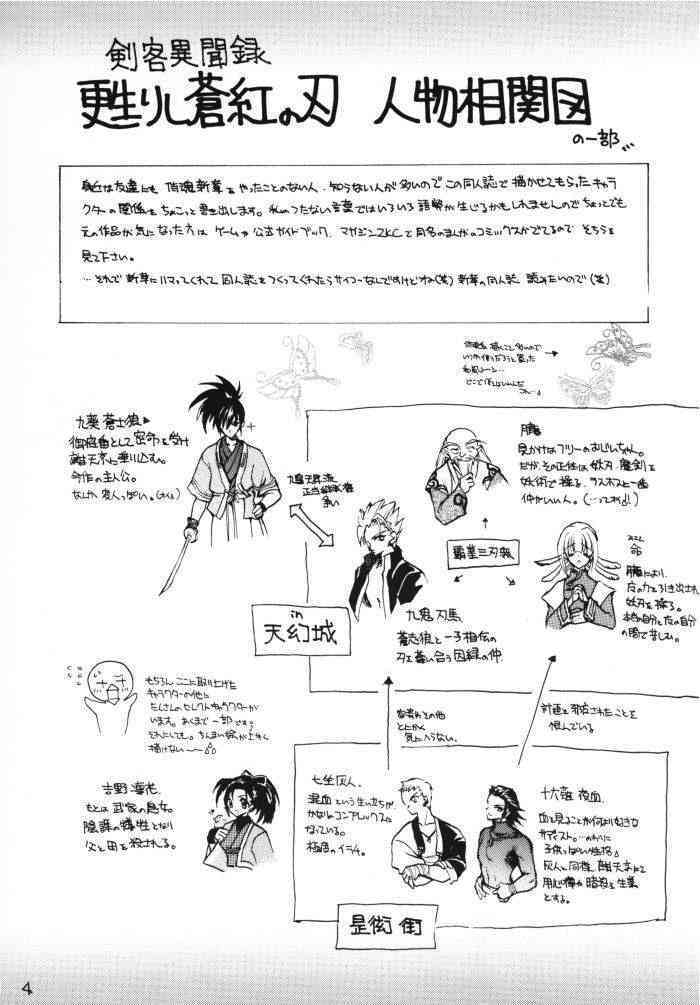 剣客異聞録
甦りし蒼紅の刃 人物相関図
の一部
最近は友達にも 侍魂新章をやったことのない人、知らない人が多いのでこの同人誌で描かせてもらったキャラ
クターの関係をちょこっと書き出します。私のつたない言葉ではいろいろ誤解が生じるかもしれませんのでちょっとでも
元の作品が気になった方は ゲームや公式ガイドブック、マガジンZKCで
のまんがのコミックスがでてるので そちらを
見て下さい。
…それで新章にハマってくれて 同人誌をつくってくれたらサイコーなんですけどね(笑) 新章の同人誌 読みたいので(笑)
九葵 蒼志狼
御庭番として密命を受け
離天京に乗り込む。
今作の主人公。
なんか変人っぽい。
九鬼天昇流
正当継承者
争い
朧
見かけはフリーのおじいちゃん。
だが、その正体は妖刀、魔剣を
妖術で操る、ラスボスと一番
仲がいい人。
覇業三刃衆
命
朧により、
力を引き出され
妖刀を操る。
本当の自分と 夜の自分
の間で苦しむ。
九鬼 刃馬
蒼志狼と一子相伝の
刃を奪い合う因縁の仲。
in
天幻城
もちろん ここに取り上げた
キャラクターの他に
たくさんのセレクトキャラクターが
います。あくまで一部です。
それにしても、ちんまい絵が上手く
描けない〜
とにかく
気に入らない。
計画を邪魔されたことを
恨んでいる
吉野 凜花
もとは武家の息女。
陰謀の犠牲となり
父と母を殺される。
七坐 灰人
混血という生い立ちが
かなりのコンプレックスに
なっている。
極度のイラチ。
十六夜 夜血
血を見ることが何より好きな
サディスト。
子供っぽい性格
灰人と同様、離天京で
用心棒や暗殺を生業
とするよ。
是衒街
4